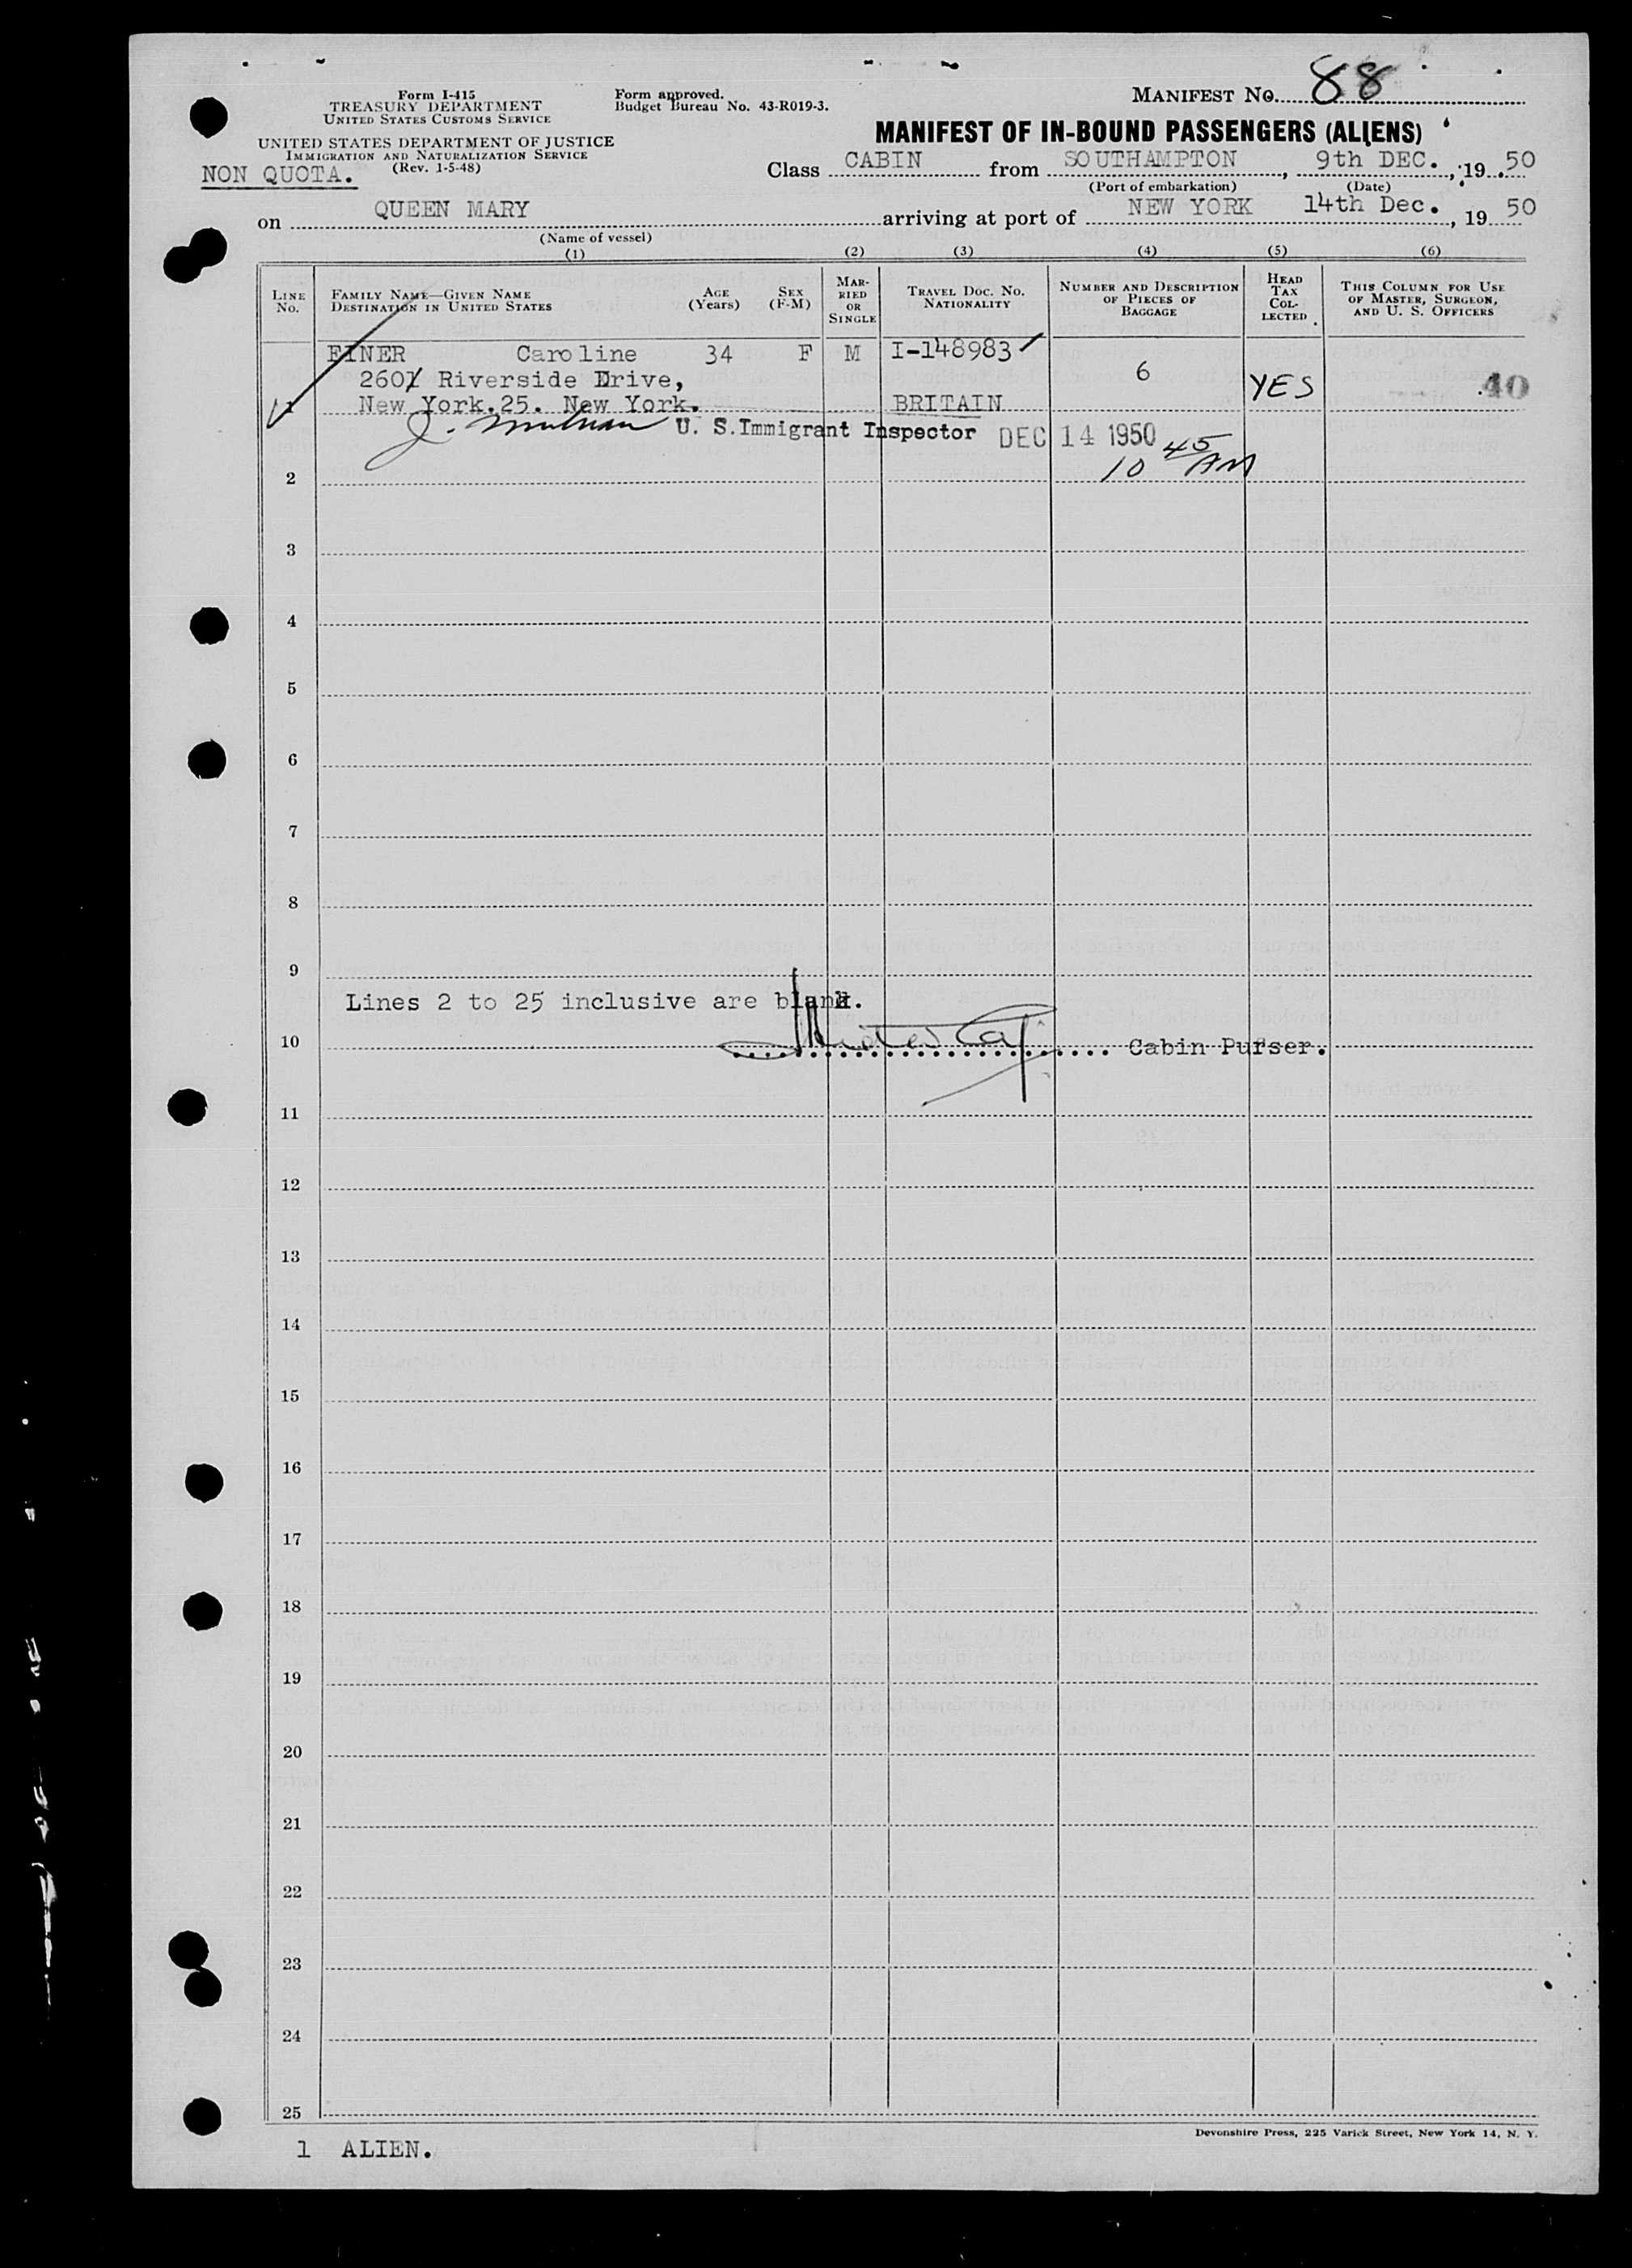 MANIFEST NO. 88
Form I-415
TREASURY DEPARTMENT
UNITED STATES CUSTOMS SERVICE
UNITED STATES DEPARTMENT OF JUSTICE
IMMIGRATION AND NATURALIZATION SERVICE
(Rev. 1-5-48)
NON QUOTA.
Form approved.
Budget Bureau No. 43-R019-3.
MANIFEST OF IN-BOUND PASSENGERS (ALIENS)
Class CABIN from SOUTHAMPTON, 9th DEC., 19 50
(Port of embarkation) (Date)
on QUEEN MARY arriving at port of NEW YORK 14th Dec., 19 50
(Name of vessel)
(1) (2) (3) (4) (5) (6)
LINE NO.
FAMILY NAME—GIVEN NAME
DESTINATION IN UNITED STATES
AGE (Years)
SEX (F-M)
MARRIED OR SINGLE
TRAVEL DOC. NO.
NATIONALITY
NUMBER AND DESCRIPTION OF PIECES OF BAGGAGE
HEAD TAX COLLECTED
THIS COLUMN FOR USE OF MASTER, SURGEON, AND U. S. OFFICERS
FINER Caroline 34 F M I-148983
Riverside Drive, 6 YES 40
New York.25. New York. BRITAIN
U. S. Immigrant Inspector DEC 14 1950
10 45 AM
2
3
4
5
6
7
8
9
Lines 2 to 25 inclusive are blank.
10 Cabin Purser.
11
12
13
14
15
16
17
18
19
20
21
22
23
24
25
Devonshire Press, 225 Varick Street, New York 14, N. Y.
1 ALIEN.